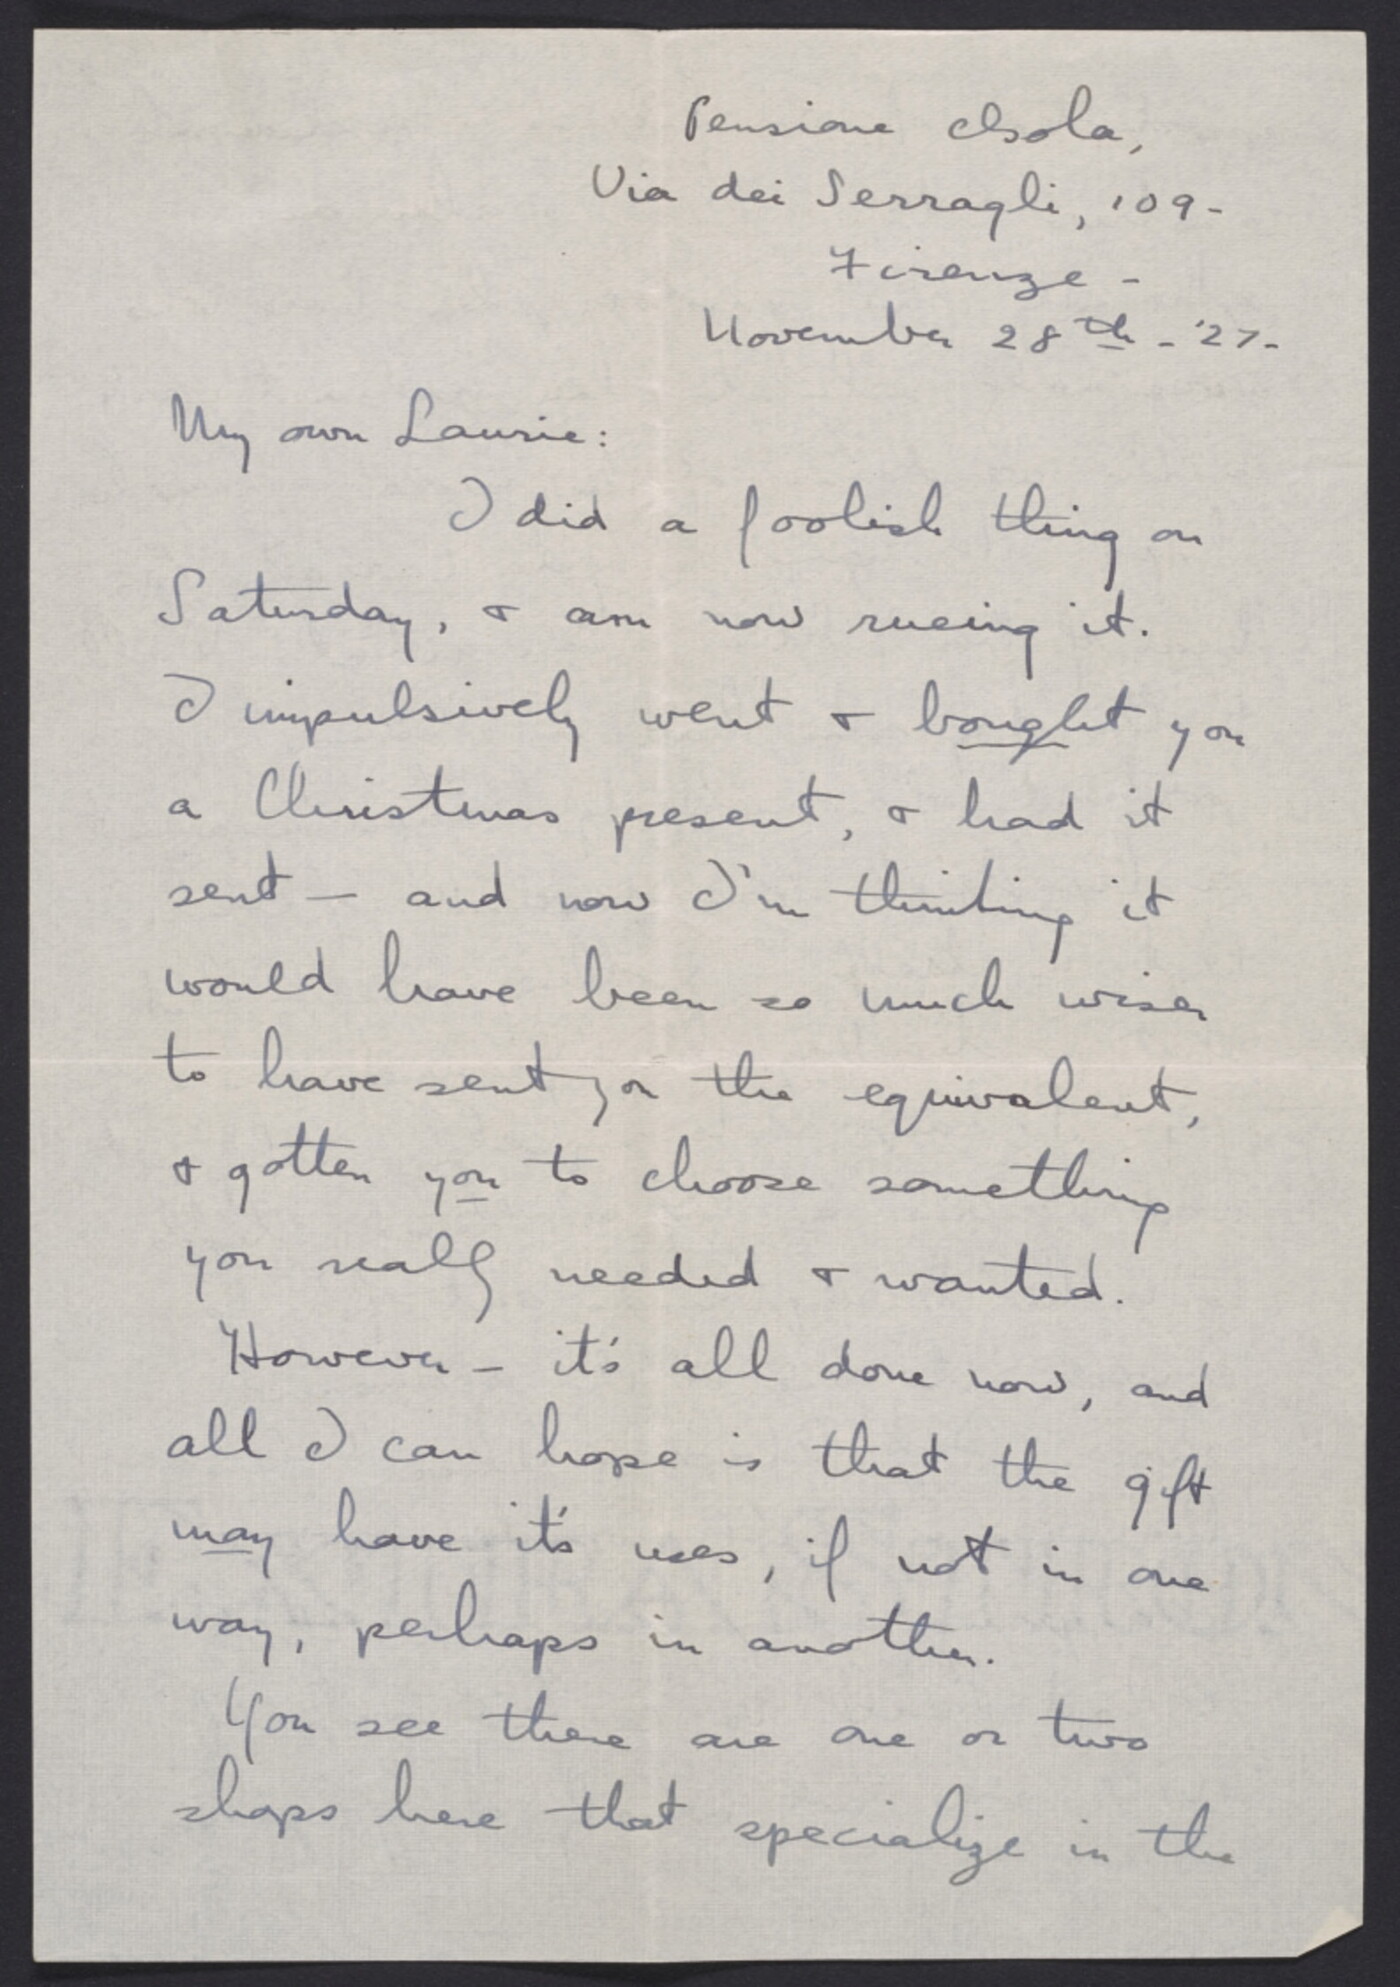 Pensione Isola,
Via dei Serragli, 109-
Firenze -
November 28th - '27-
My own Laurie:
I did a foolish thing on
Saturday, & am now rueing it.
I impulsively went & bought you
a Christmas present, & had it
sent — and now I'm thinking it
would have been so much wiser
to have sent you the equivalent,
& gotten you to choose something
you really needed & wanted.
However - it's all done now, and
all I can hope is that the gift
may have it's uses, if not in one
way, perhaps in another.
You see there are one or two
shops here that specialize in the